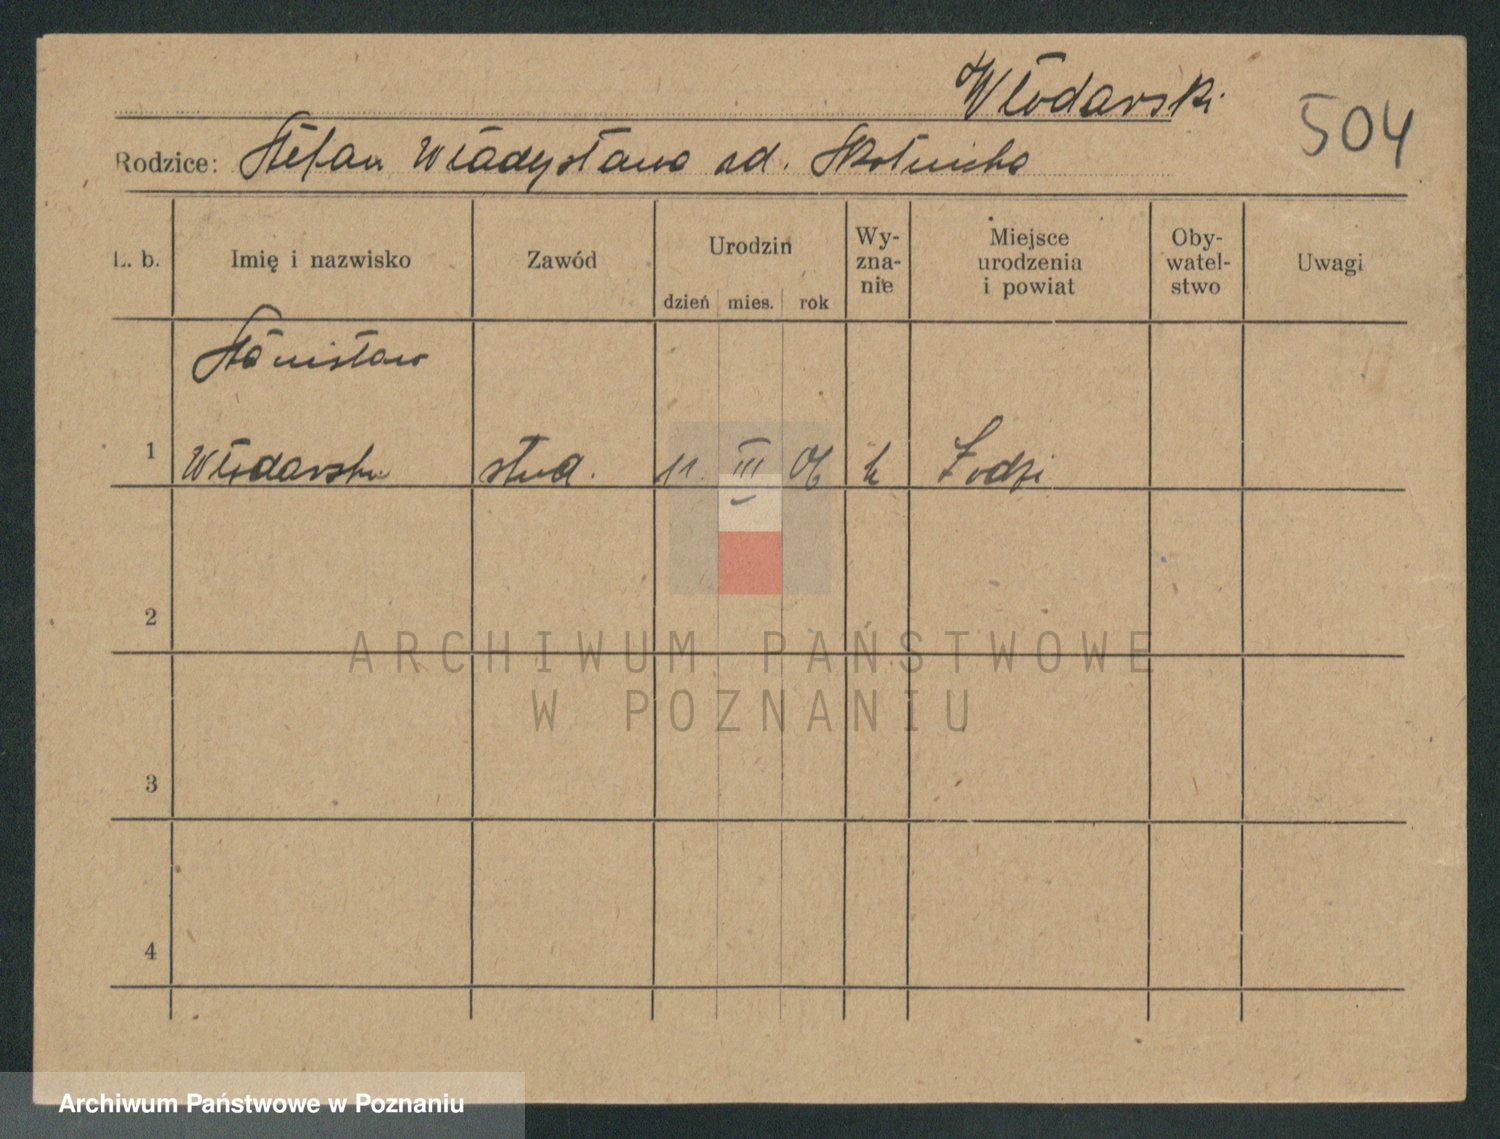 Włodarski
504
Rodzice: Stefan Władysława zd. Skolnicka
L. b.
Imię i nazwisko
Zawód
Urodzin
dzień mies. rok
Wy-
zna-
nie
Miejsce
urodzenia
i powiat
Oby-
watel-
stwo
Uwagi
Stanisław
1 Włodarski stud. 11. III 06 k Łodzi
2
3
4
ARCHIWUM PAŃSTWOWE
W POZNANIU
Archiwum Państwowe w Poznaniu